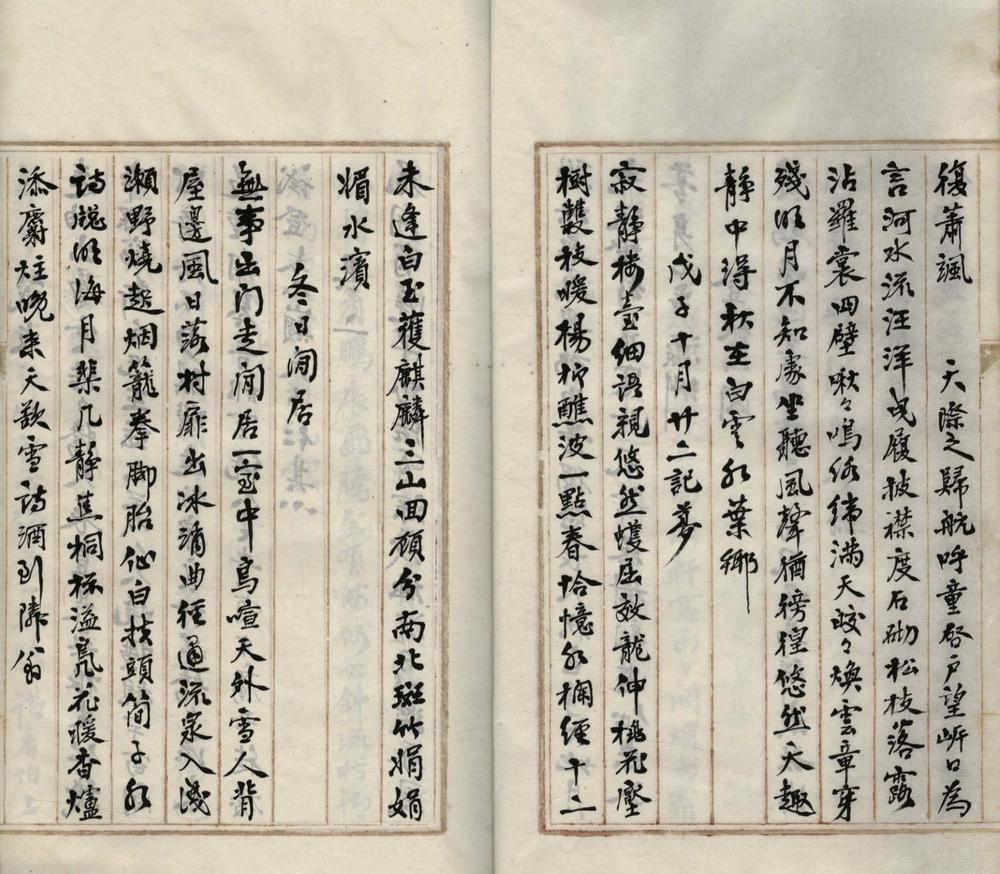 復蕭颯　天際之歸航呼童啓戶望㟁口為
言河水流汪洋曳履披襟度石砌松枝落露
沾羅裳四壁啾々鳴絡緯滿天皎々煥雲章穿
殘明月不知處坐聽風聲猶徬徨悠然天趣
靜中得秋在白雲紅葉鄉
戊子十月廿二記夢
寂靜樓臺細語親悠然蠖屈效龍伸桃花壓
樹雙枝暖楊柳蘸波一點春恰憶紅欄經十二
未逢白玉蘀麒麟三山回顧分南北斑竹娟娟
媚水濱
冬日閒居
無事出门走閒居一室中鳥喧天外雪人背
屋邊風日落村扉出冰消曲徑通流泉入淺
瀨野燒起烟籠拳脚胎仙白扶頭簡子紅
詩牕明海月棐几靜焦桐杯溢鳧花暖香爐
添麝炷晚來天欲雪詩酒到隣翁